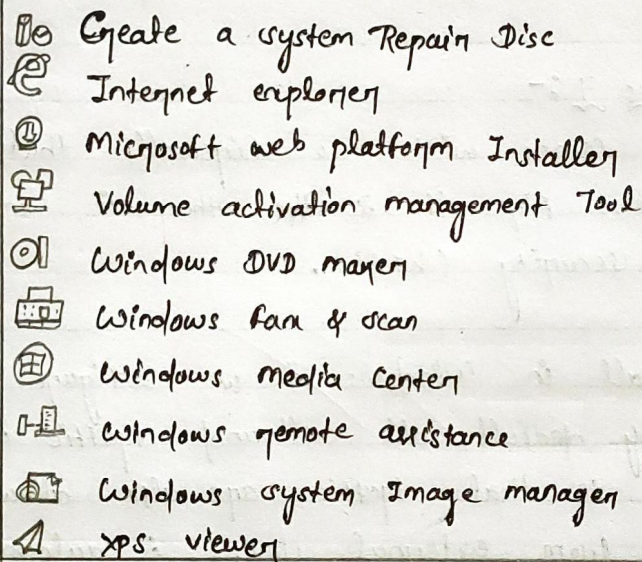 Create a system Repair Disc
Internet explorer
Microsoft web platform Installer
Volume activation management Tool
Windows DVD maker
Windows fax & scan
Windows media Center
Windows remote assistance
Windows system Image manager
xps viewer